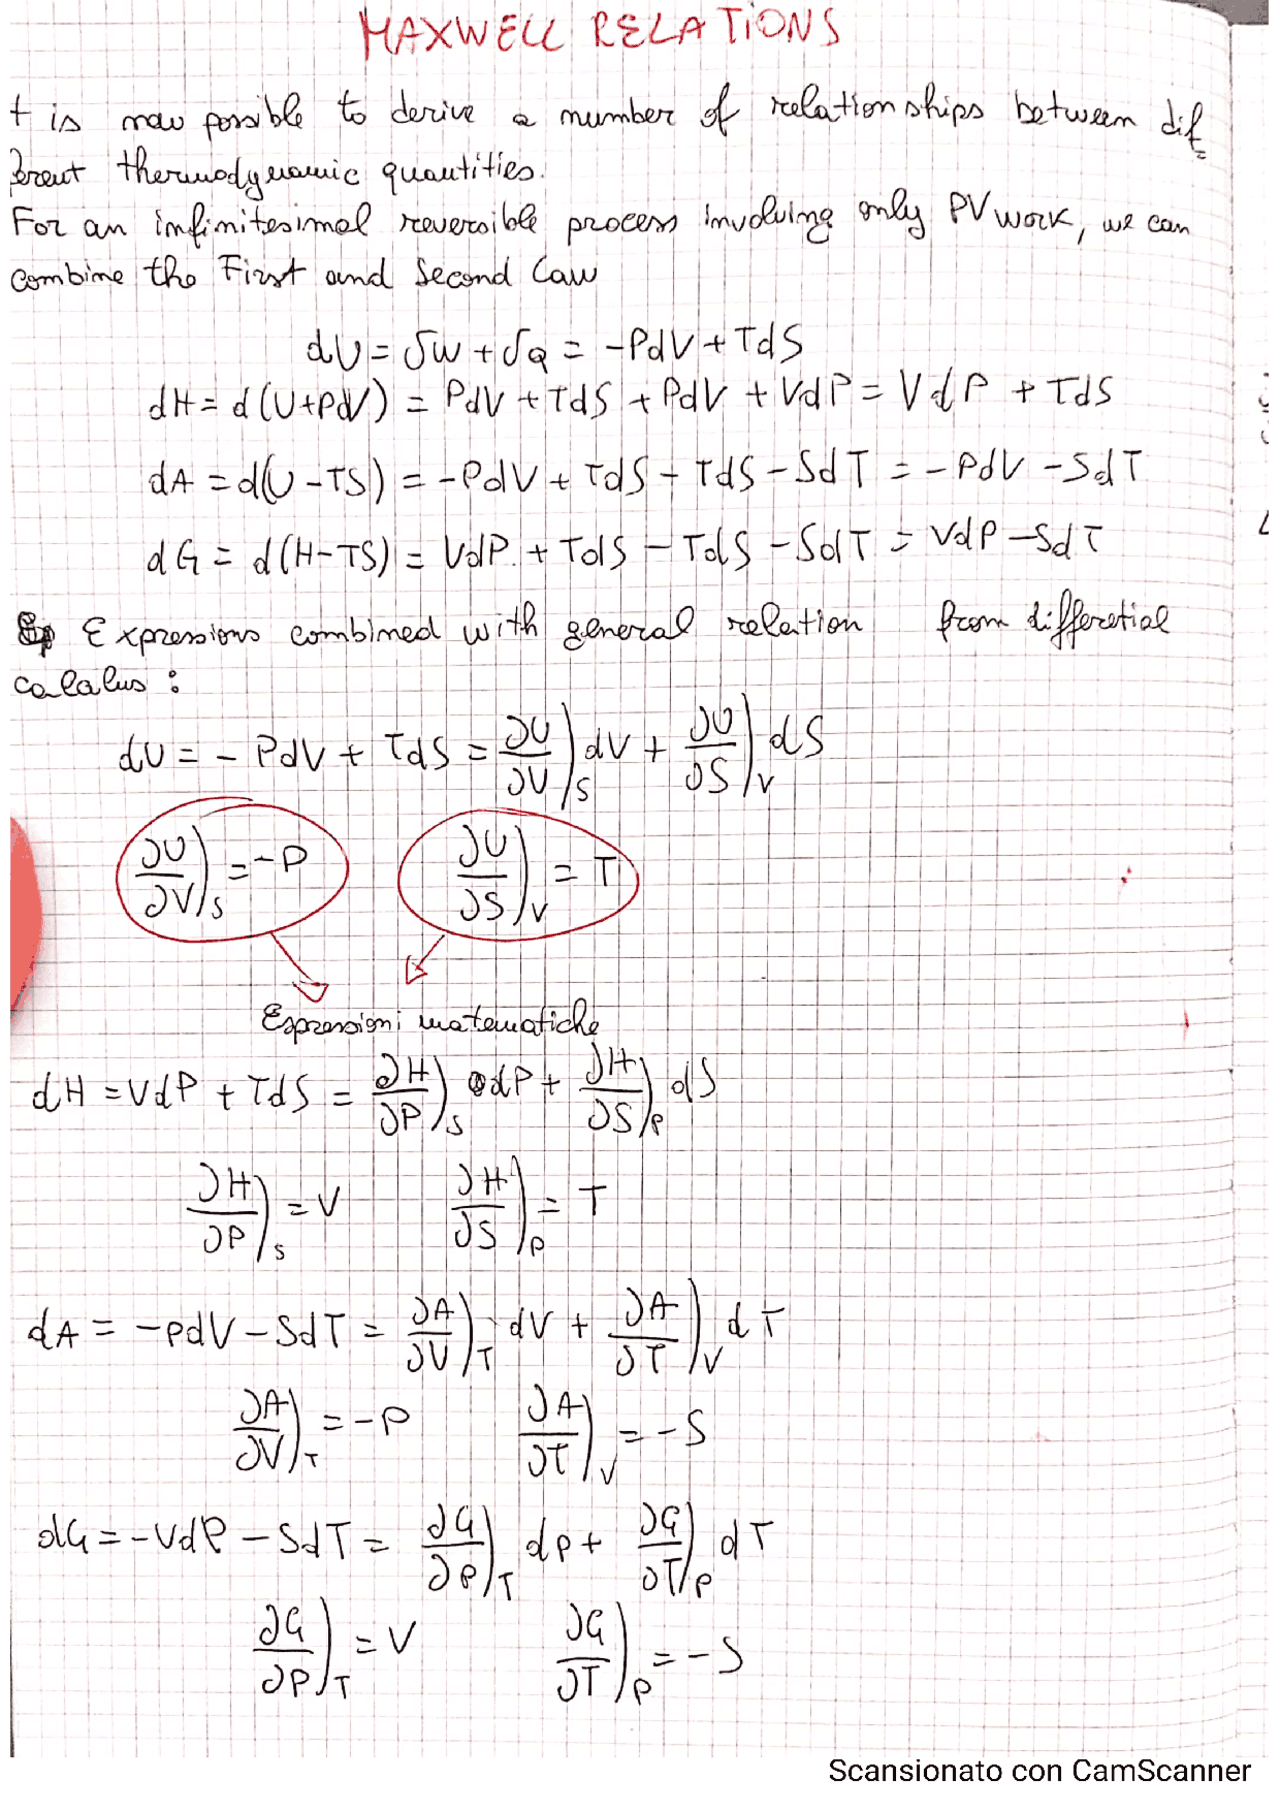 MAXWELL RELATIONS
t is now possible to derive a number of relationships between dif=
ferent thermodynamic quantities.
For an infinitesimal reversible process involving only PV work, we can
combine the First and Second Law
dU = δW + δQ = -PdV + TdS
dH = d(U+PdV) = PdV + TdS + PdV + VdP = VdP + TdS
dA = d(U-TS) = -PdV + TdS - TdS - SdT = -PdV - SdT
dG = d(H-TS) = VdP + TdS - TdS - SdT = VdP - SdT
Expressions combined with general relation from differetial
calalus :
dU = - PdV + TdS = ∂U/∂V)S dV + ∂U/∂S)V dS
∂U/∂V)S = -P ∂U/∂S)V = T
Espressioni matematiche
dH = VdP + TdS = ∂H/∂P)S dP + ∂H/∂S)P dS
∂H/∂P)S = V ∂H/∂S)P = T
dA = -PdV - SdT = ∂A/∂V)T dV + ∂A/∂T)V dT
∂A/∂V)T = -P ∂A/∂T)V = -S
dG = -VdP - SdT = ∂G/∂P)T dP + ∂G/∂T)P dT
∂G/∂P)T = V ∂G/∂T)P = -S
Scansionato con CamScanner